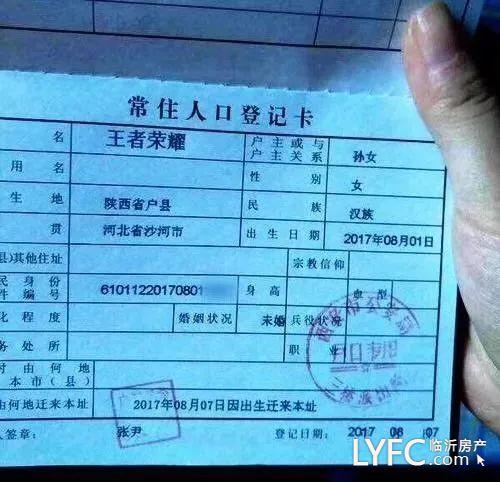 常住人口登记卡
名 王者荣耀 户主或与户主关系 孙女
用名 性别 女
生地 陕西省户县 民族 汉族
贯 河北省沙河市 出生日期 2017年08月01日
县)其他住址 宗教信仰
民身份件编号 61011220170801 身高 血型
化程度 婚姻状况 未婚 兵役状况
务处所 职业
时由何地本市(县)
由何地迁来本址 2017年08月07日因出生迁来本址
人签章: 张尹 登记日期: 2017 08 07
户口专用
LYFC 临沂房产
.com